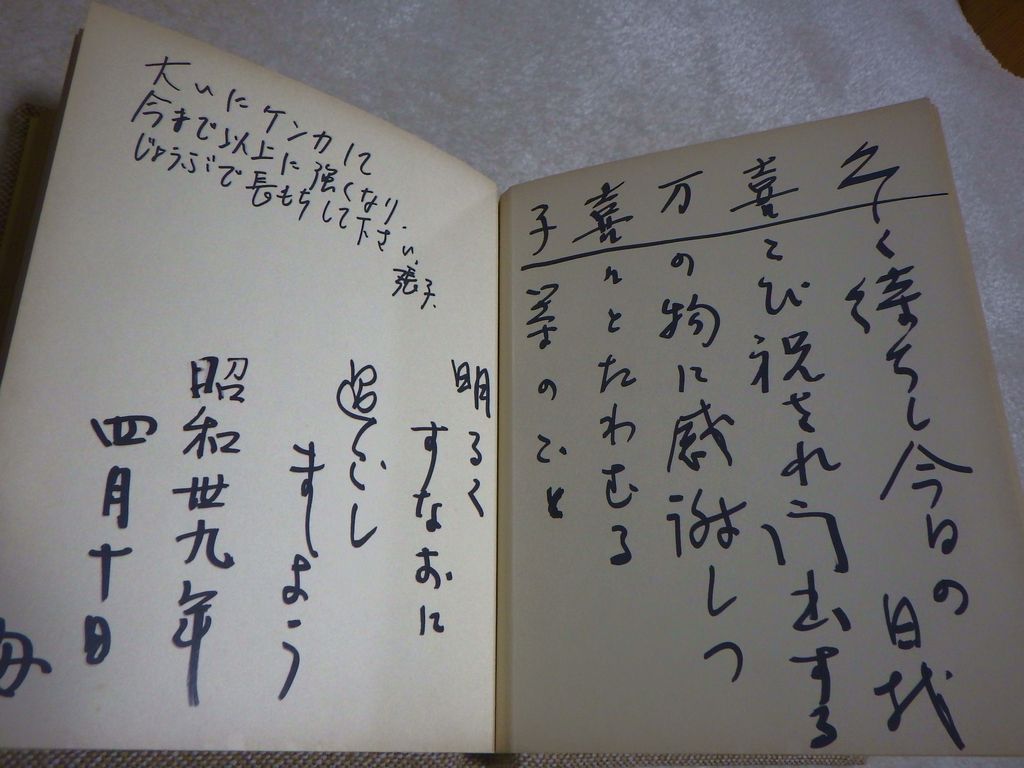 久しく待ちし今日の日
喜こび祝され門出する
万の物に感謝しつ
喜々とたわむる
子等のごと
大いにケンカして
今まで以上に強くなり、
じょうぶで長もちして下さい。
明るく
すなおに
過ごし
ましょう
昭和卅九年
四月十日
母